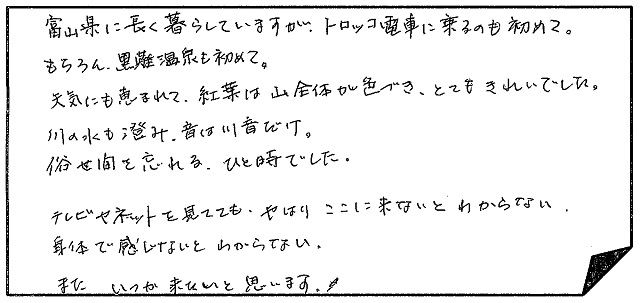 富山県に長く暮らしていますが、トロッコ電車に乗るのも初めて。
もちろん、黒薙温泉も初めて。
天気にも恵まれて、紅葉は山全体が色づき、とてもきれいでした。
川の水も澄み、音は川音だけ。
俗世間を忘れる、ひと時でした。
テレビやネットを見てても、やはりここに来ないとわからない、
身体で感じないとわからない。
また いつか来たいと思います。!